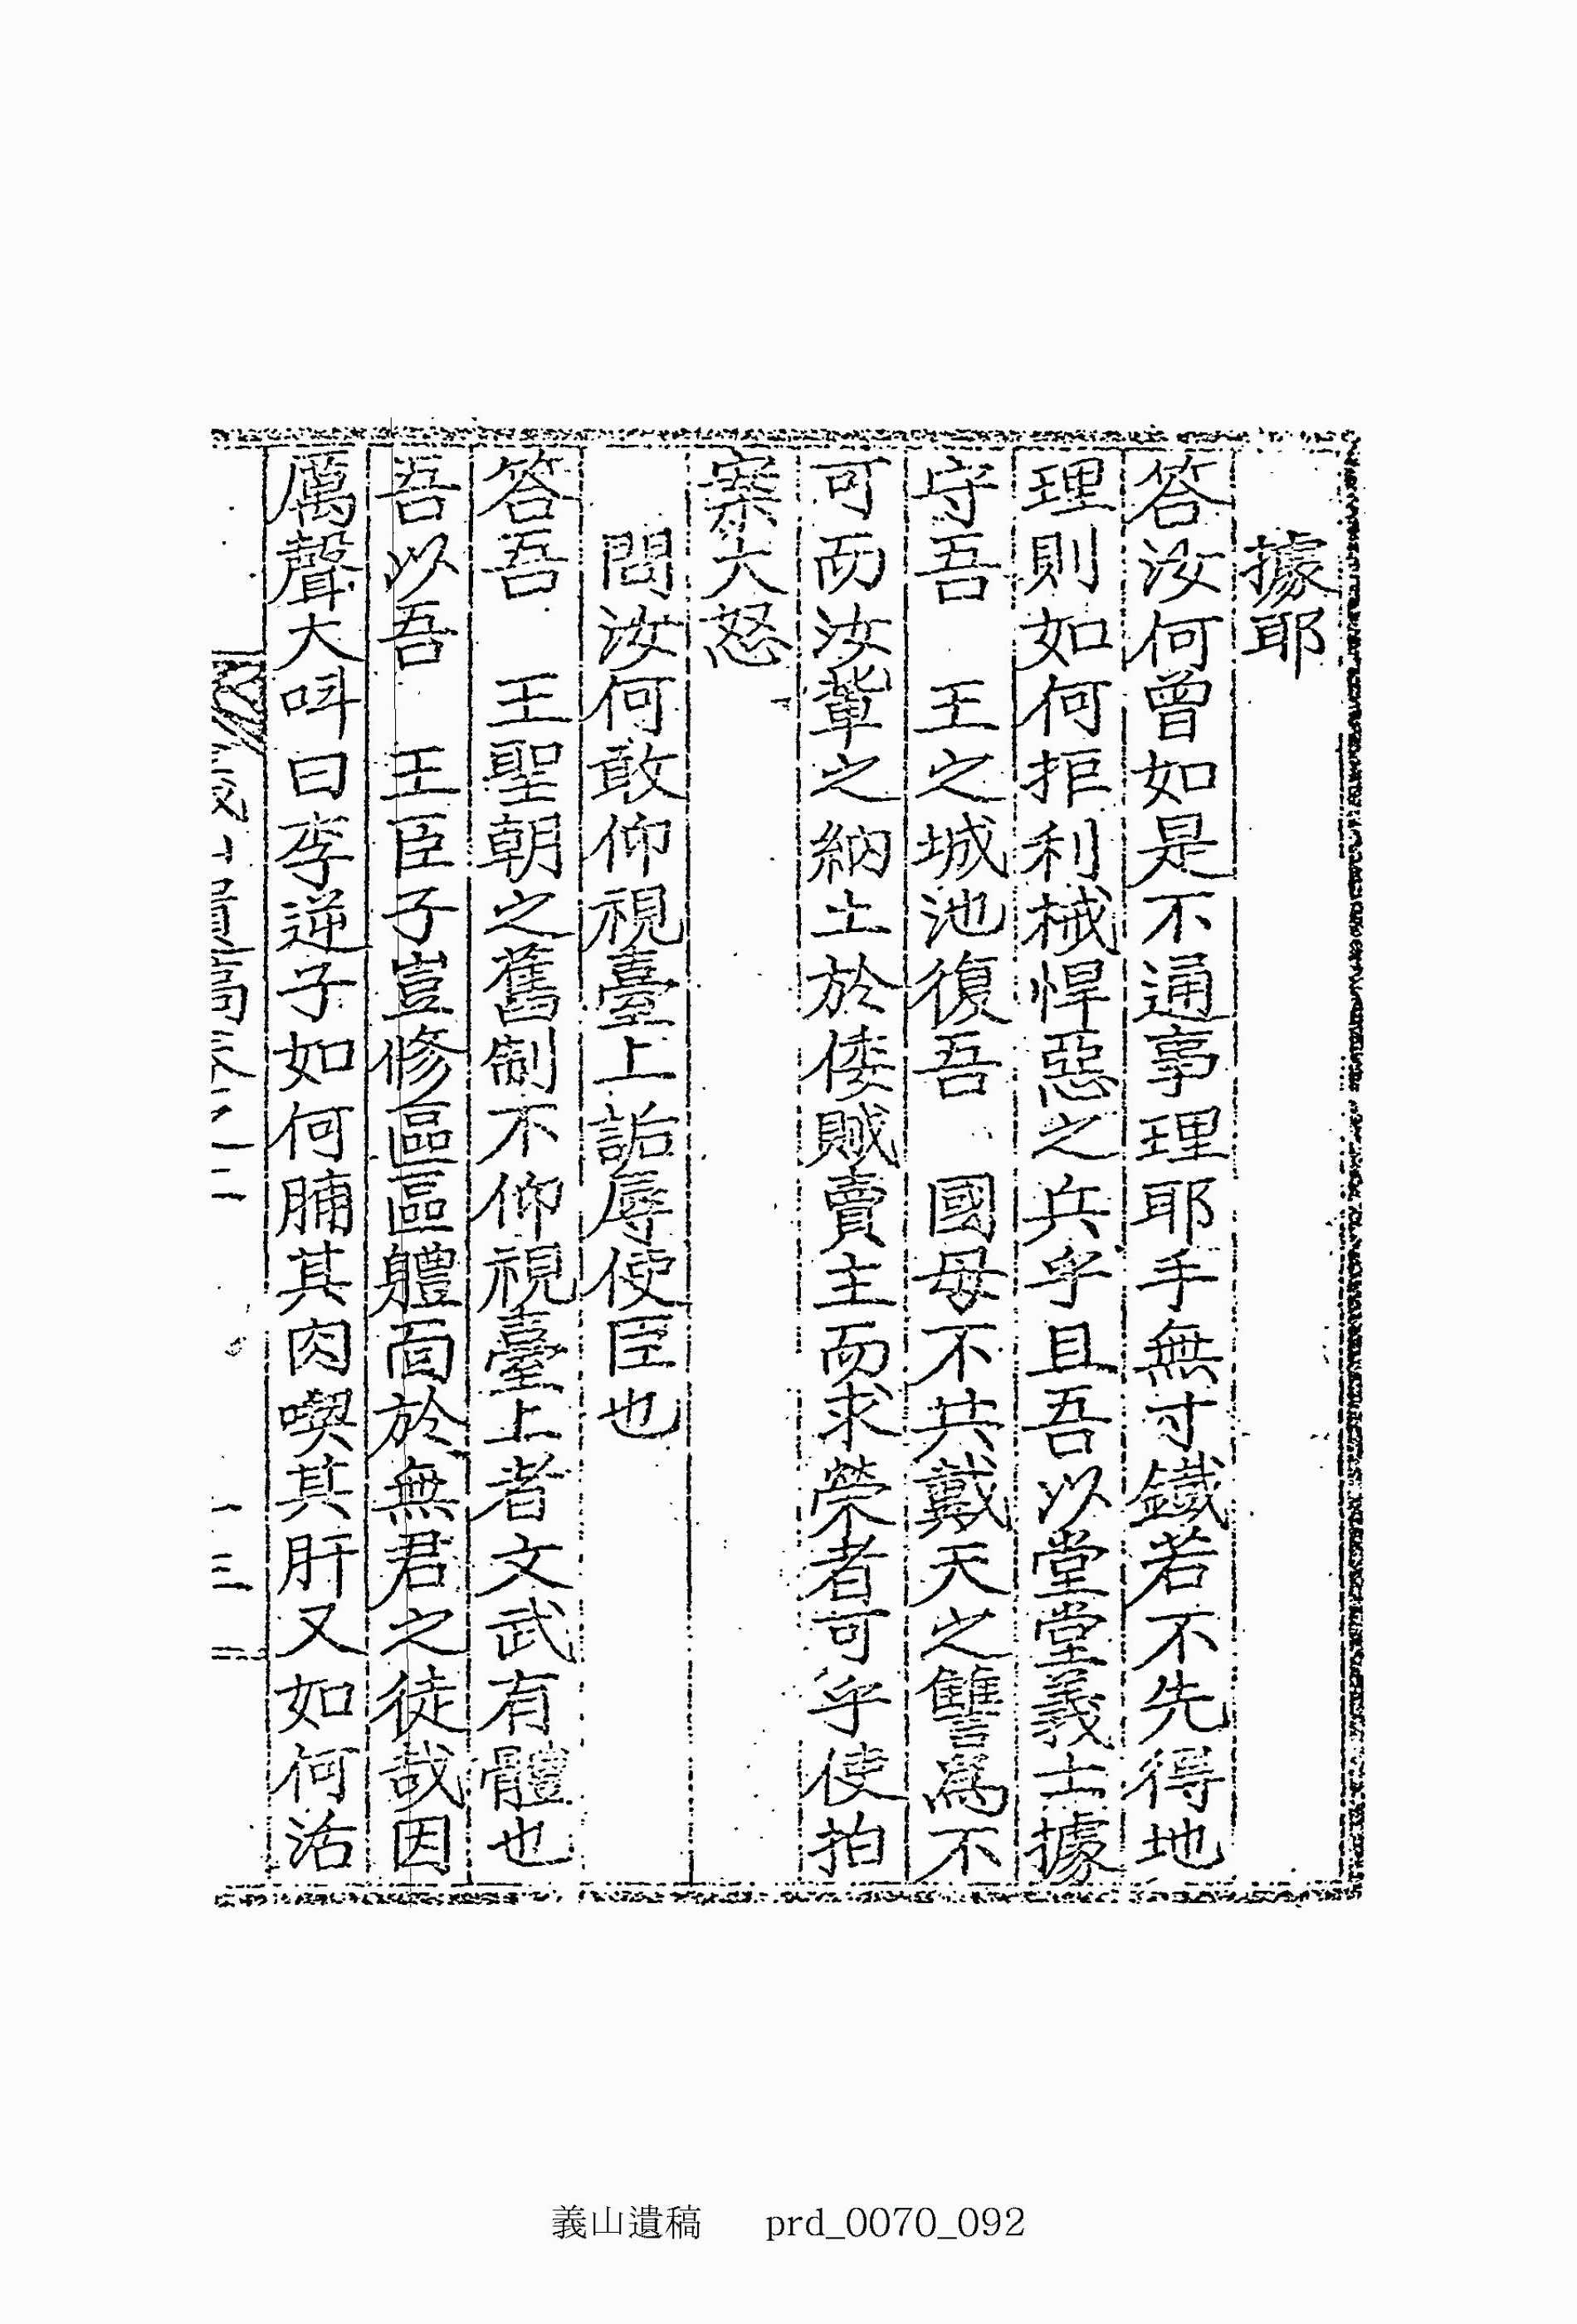 據耶
答汝何曾如是不通事理耶手無寸鐵若不先得地
理則如何拒利械悍惡之兵乎且吾以堂堂義士據
守吾　王之城池復吾　國母不共戴天之讐爲不
可而汝輩之納土於倭賊賣主而求榮者可乎使拍
案大怒
問汝何敢仰視臺上詬辱使臣也
答吾　王聖朝之舊制不仰視臺上者文武有體也
吾以吾　王臣子豈修區區軆面於無君之徒哉因
厲聲大呌曰李逆子如何脯其肉喫其肝又如何活
義山遺稿　prd_0070_092